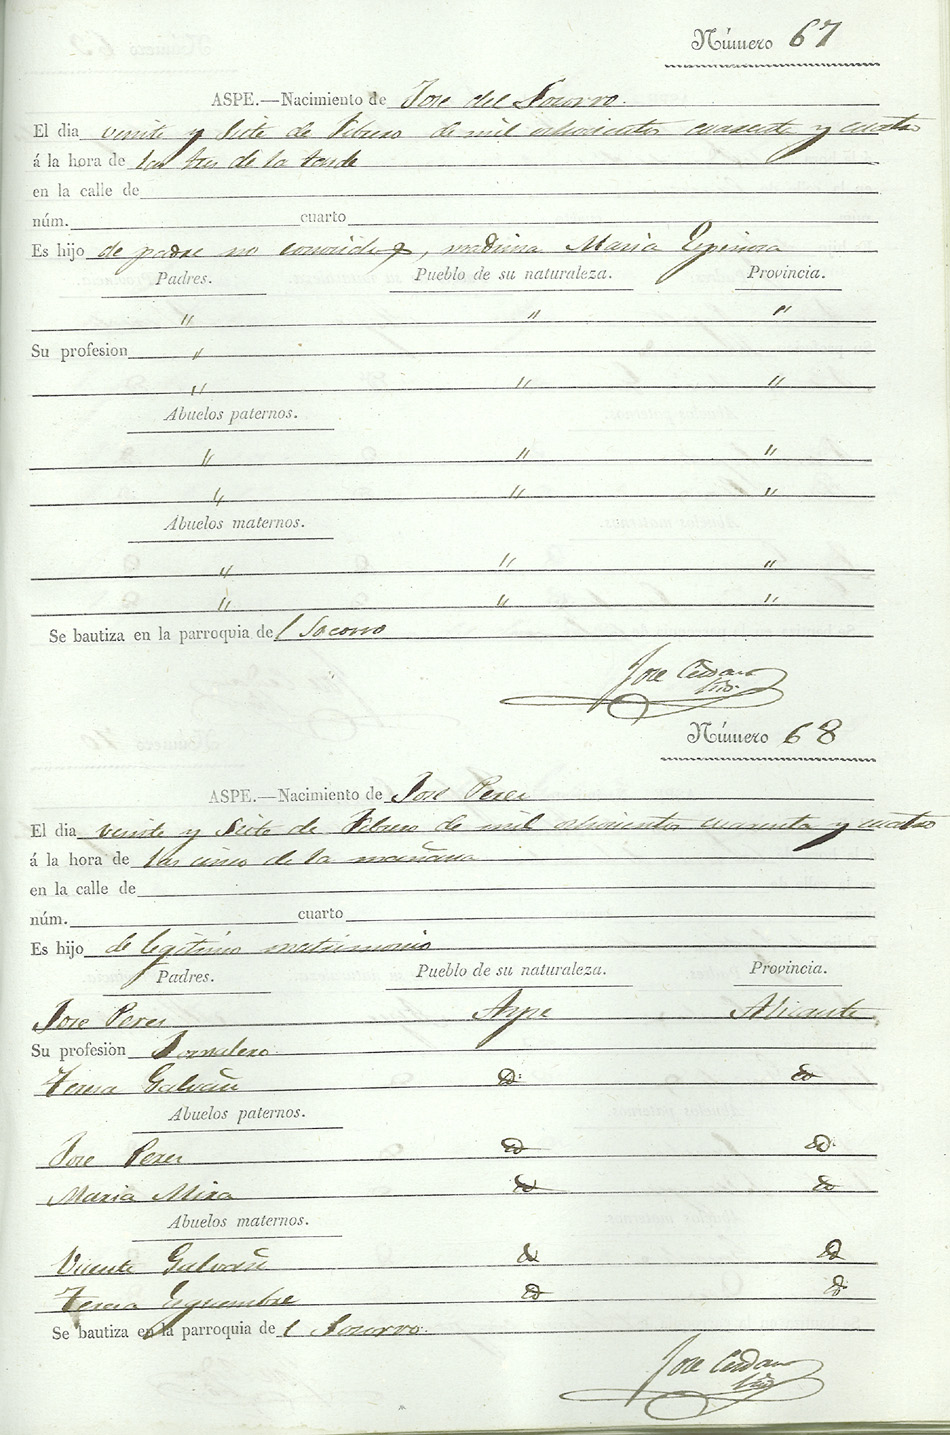 Número 67
ASPE.—Nacimiento de Jose del Socorro.
El dia veinte y Siete de Febrero de mil ochocientos cuarenta y cuatro
á la hora de las tres de la tarde
en la calle de
núm. cuarto
Es hijo de padre no conocido, madrina Maria
Padres. Pueblo de su naturaleza. Provincia.
" " "
Su profesion "
" " "
Abuelos paternos.
" " "
" " "
Abuelos maternos.
" " "
" " "
Se bautiza en la parroquia del Socorro
Jose Cerdan
Número 68
ASPE.—Nacimiento de José Peres
El dia veinte y Siete de Febrero de mil ochocientos cuarenta y cuatro
á la hora de las cinco de la mañana
en la calle de
núm. cuarto
Es hijo de legitimo matrimonio
Padres. Pueblo de su naturaleza. Provincia.
Jose Peres Aspe Alicante
Su profesion Jornalero
Teresa Galvañ id id
Abuelos paternos.
Jose Peres id id
Maria Mira id id
Abuelos maternos.
Vicente Galvañ id id
Teresa id id
Se bautiza en la parroquia del Socorro.
Jose Cerdan